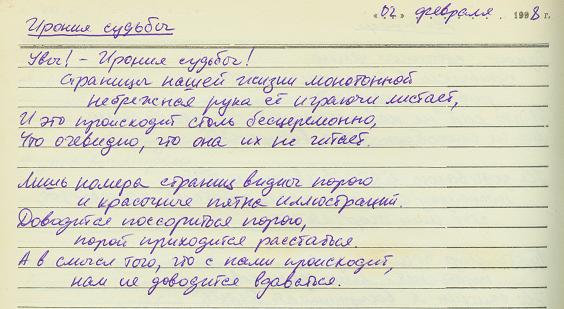 Ирония судьбы «02» февраля 1998 г.
Увы! – Ирония судьбы!
Страницы нашей жизни монотонной
небрежная рука её играючи листает,
И это происходит столь бесцеремонно,
Что очевидно, что она их не читает.
Лишь номера страниц видны порою
и красочные пятна иллюстраций.
Доводится поссориться порою,
порой приходится расстаться.
А в смысл того, что с нами происходит,
нам не доводится вдаваться.